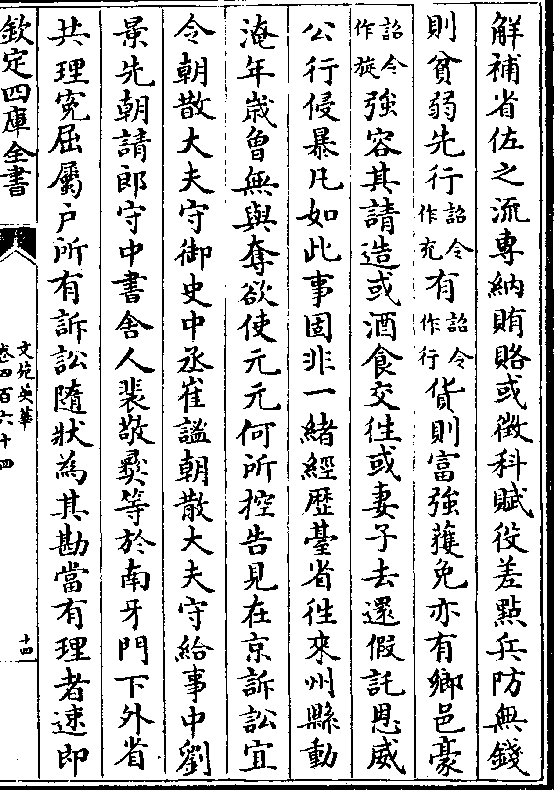 解補省佐之流專納賄賂或徵科賦役差點兵防無錢
則貧弱先行詔令作充有詔令作行貨則富強獲免亦有鄉邑豪
詔令作旋強容其請造或酒食交徃或妻子去還假託恩威
公行侵暴凡如此事固非一緒經歴臺省徃來州縣動
淹年歳曾無與奪欲使元元何所控告見在京訴訟宜
令朝散大夫守御史中丞崔謐朝散大夫守給事中劉
景先朝請郎守中書舍人裴敬彛等於南牙門下外省
共理寃屈屬戸所有訴訟隨狀為其勘當有理者速即
欽定四庫全書
文苑英華
卷四百六十四
十四